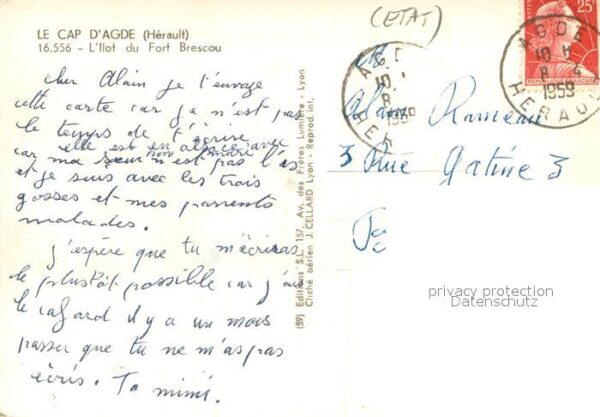 LE CAP D'AGDE (Hérault)
16.556 - L'Ilot du Fort Brescou
(ETAT)
cher Alain je t'envoye
cette carte car je n'est pas
le temps de t'écrire
elle est en alsace avec
car ma n'est pas là
et je suis avec les trois
gosses et mes parrents
malades.
j'espère que tu m'écriras
le plustôt possible car j'ai
le cafard il y a un mois
passer que tu ne m'as pas
écris. Ta mimi.
(59) Editions S.L. 157, Av. des Frères Lumière - Lyon
Cliché aérien J. CELLARD Lyon - Reprod. int.
25F
AGDE
10 H
8
1959
HERAULT
AGDE
10
8
1959
HER
M
Alain Rameau
3 Rue Gatine 3
privacy protection
Datenschutz